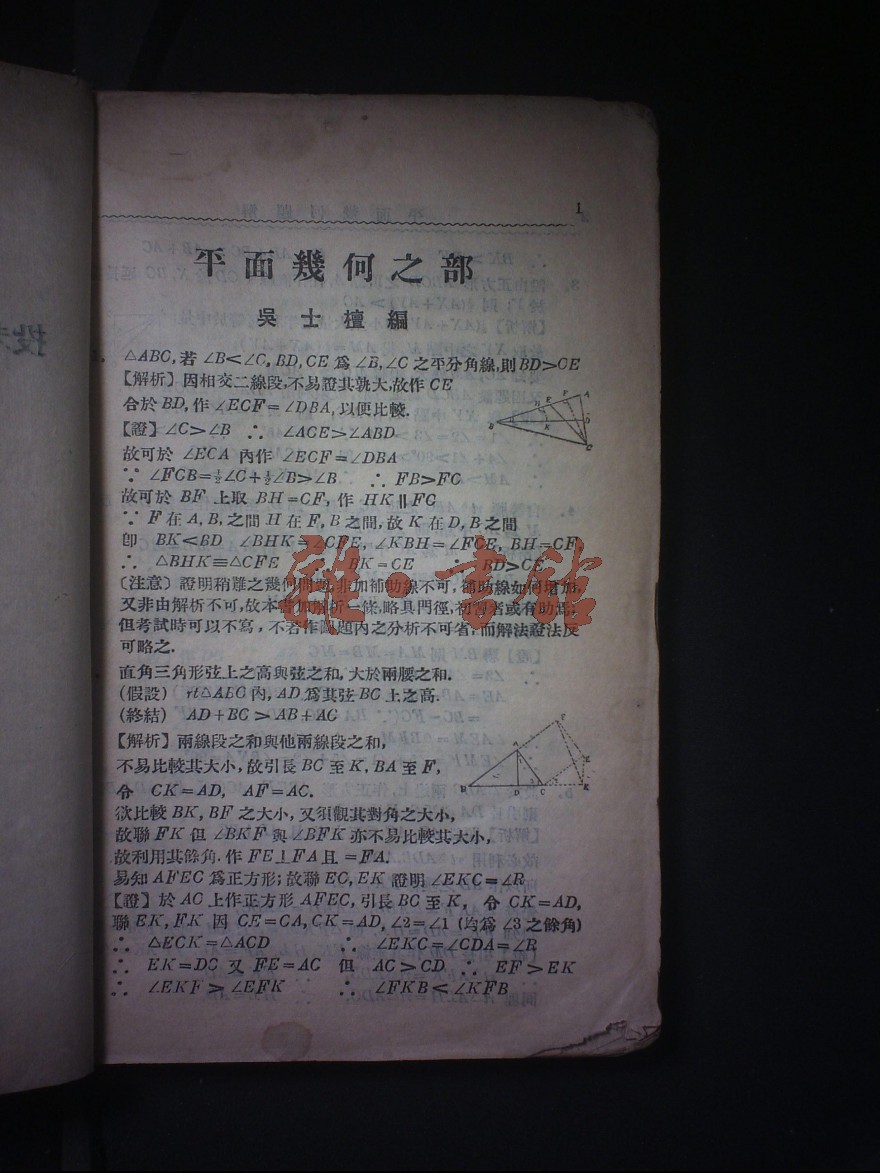 1
平面幾何之部
吳士檀編
△ABC,若 ∠B<∠C, BD, CE 爲 ∠B, ∠C 之平分角線,則 BD>CE
【解析】因相交二線段,不易證其孰大,故作 CE
合於 BD,作 ∠ECF=∠DBA,以便比較.
【證】∠C>∠B ∴ ∠ACE>∠ABD
故可於 ∠ECA 內作 ∠ECF=∠DBA
∵ ∠FCB=½∠C+½∠B>∠B ∴ FB>FC
故可於 BF 上取 BH=CF, 作 HK∥FC
∵ F 在 A, B, 之間 H 在 F, B 之間,故 K 在 D, B 之間
卽 BK<BD ∠BHK=∠CFE, ∠KBH=∠FCE, BH=CF
∴ △BHK≡△CFE ∴ BK=CE ∴ BD>CE
〔注意〕證明稍難之幾何問題,非加補助線不可,補助線如何增加,
又非由解析不可,故本書加解析一條,略具門徑,初習者或有助焉;
但考試時可以不寫,不若作圖題內之分析不可省,而解法證法反
可略之.
直角三角形弦上之高與弦之和,大於兩腰之和.
(假設) rt△ABC 內, AD 爲其弦 BC 上之高.
(終結) AD+BC>AB+AC
【解析】兩線段之和與他兩線段之和,
不易比較其大小,故引長 BC 至 K, BA 至 F,
令 CK=AD, AF=AC.
欲比較 BK, BF 之大小,又須觀其對角之大小,
故聯 FK 但 ∠BKF 與 ∠BFK 亦不易比較其大小,
故利用其餘角.作 FE⊥FA 且 =FA.
易知 AFEC 爲正方形;故聯 EC, EK 證明 ∠EKC=∠R
【證】於 AC 上作正方形 AFEC,引長 BC 至 K, 令 CK=AD,
聯 EK, FK 因 CE=CA, CK=AD, ∠2=∠1 (均爲 ∠3 之餘角)
∴ △ECK=△ACD ∴ ∠EKC=∠CDA=∠R
∴ EK=DC 又 FE=AC 但 AC>CD ∴ EF>EK
∴ ∠EKF>∠EFK ∴ ∠FKB<∠KFB